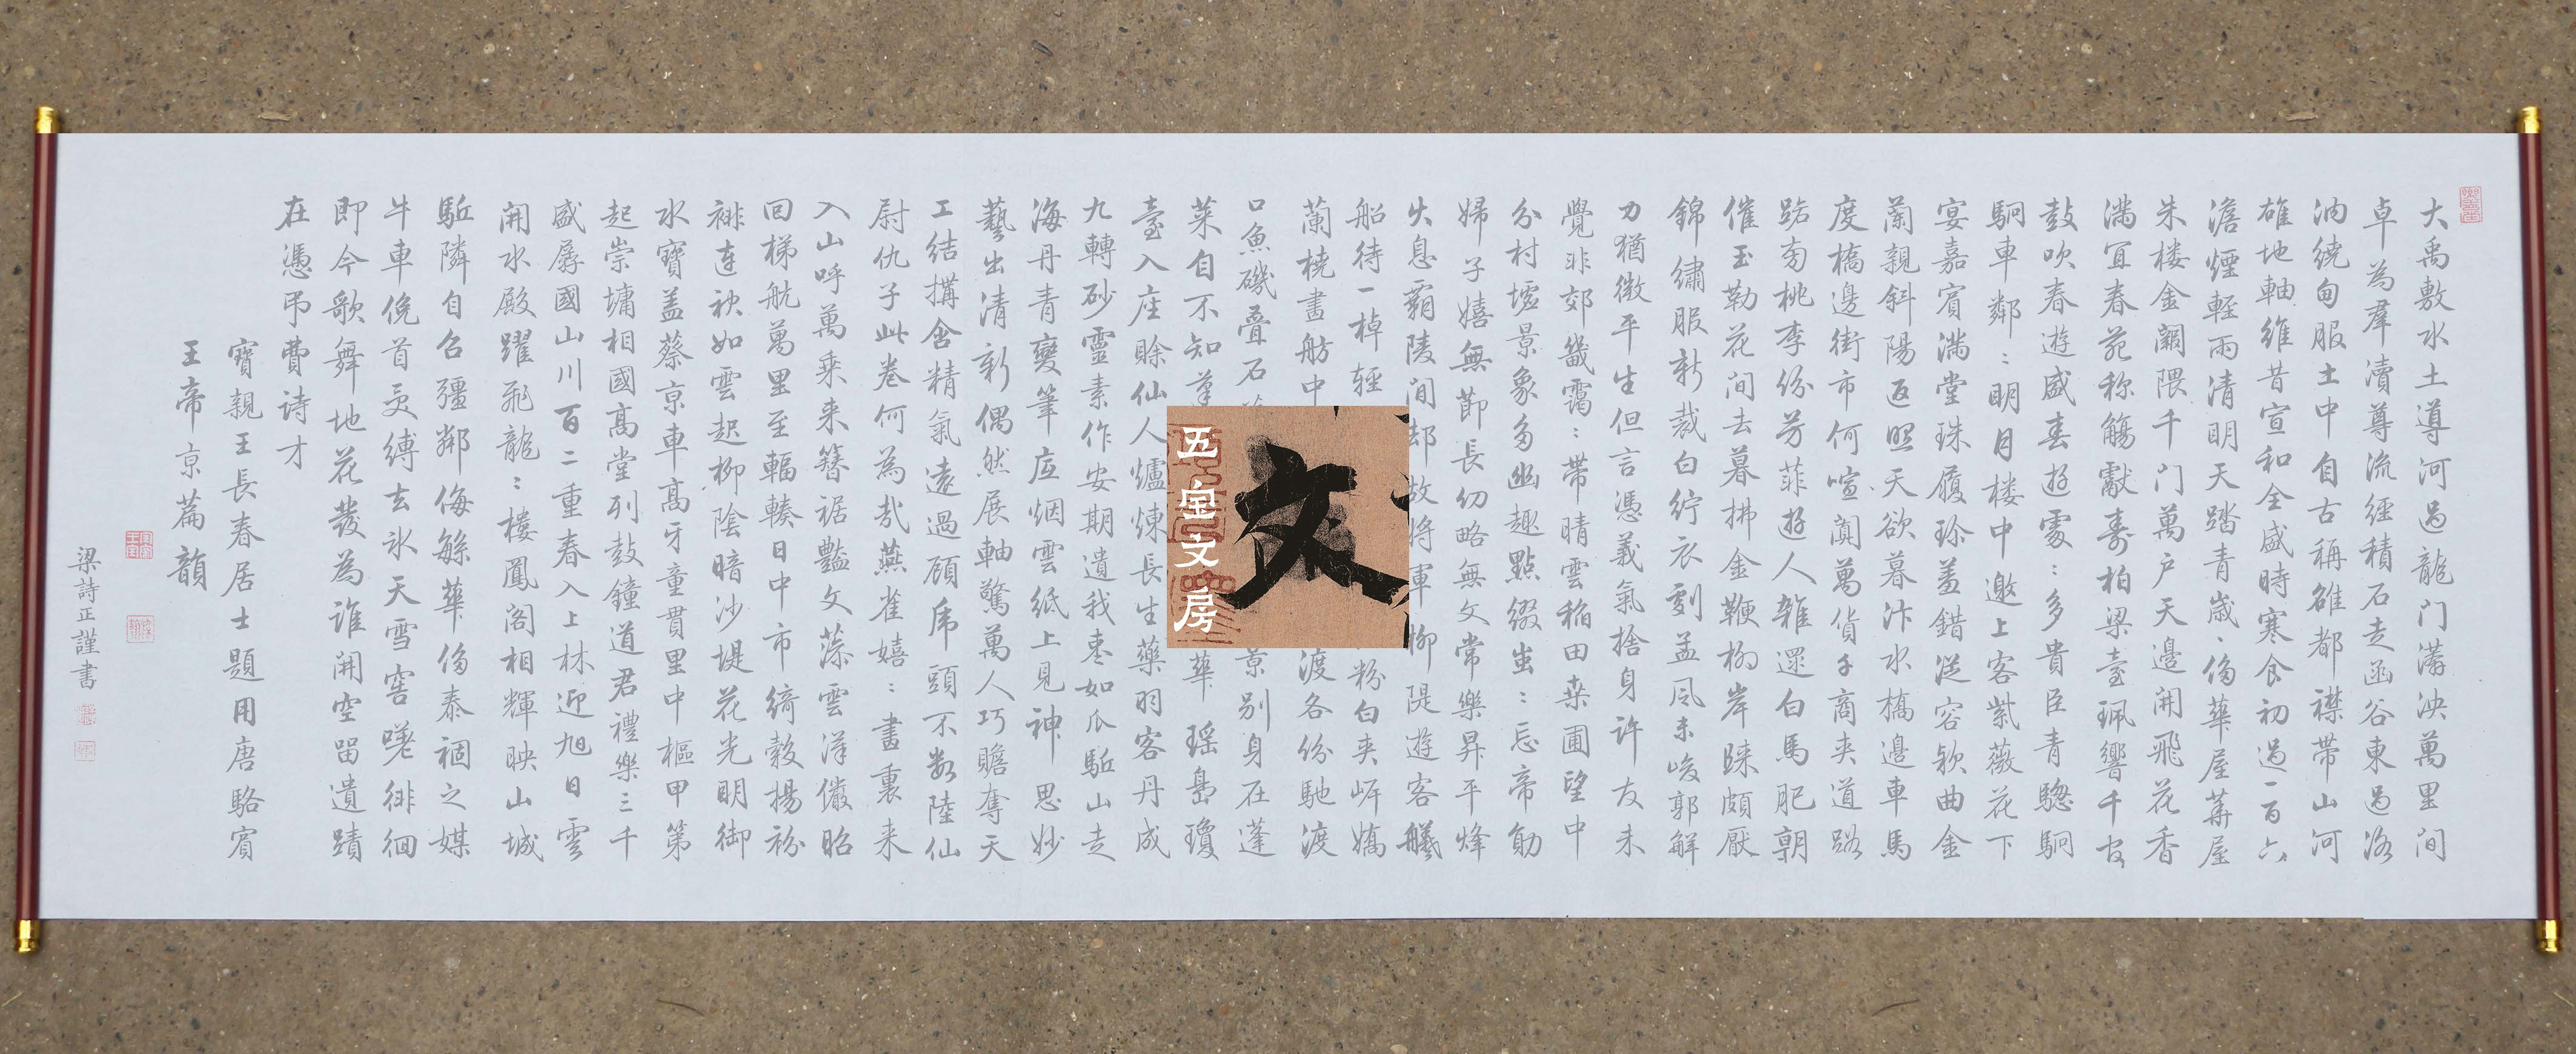 大禹敷水土導河過龍门瀁泱萬里间
卓為羣瀆尊流經積石走函谷東過洛
汭繞甸服土中自古稱雄都襟带山河
雄地軸維昔宣和全盛時寒食初過一百六
澹煙輕雨清明天踏青歲〻侈華屋華屋
朱楼金闕隈千门萬户天邊開飛花香
滿宜春苑称觴獻壽柏梁臺珮響千官
鼓吹春遊盛春遊處〻多貴臣青驄駉
駉車鄰〻明月楼中邀上客紫薇花下
宴嘉賓滿堂珠履珍羞錯從容欵曲金
蘭親斜陽返照天欲暮汴水橋邊車馬
度橋邊街市何喧闐萬貨千商夹道路
路旁桃李份芳菲遊人雜還白馬肥朝
催玉勒花间去暮拂金鞭柳岸歸頗厭
錦繡服新裁白紵衣劇孟風未峻郭解
刀猶微平生但言憑義氣捨身许友未
覺非郊畿靄〻帶晴雲稻田桑圃望中
分村墟景象多幽趣點缀蚩〻忘帝勛
婦子嬉無節長幼略無文常樂昇平烽
火息霸陵间却故将軍柳隄遊客艤
船待一棹輕粉白夹岸嬌
蘭橈畫舫中渡各份馳渡
口魚磯疊石景别身在蓬
莱自不知華瑶島瓊
臺入座賒仙人爐煉長生藥羽客丹成
九轉砂靈素作安期遺我枣如瓜驱山走
海丹青變筆底烟雲紙上見神思妙
藝出清新偶然展軸驚萬人巧贍奪天
工结搆含精氣遠過顧虎頭不数陸仙
尉仇子此卷何為哉燕雀嬉〻畫裏来
入山呼萬乗来簪裾豔文藻雲漢儼昭
回梯航萬里至輻輳日中市綺縠揚袮
裶連袂如雲起柳陰暗沙堤花光明御
水寶盖蔡京車高牙童貫里中樞甲第
起崇墉相國高堂列鼓鐘道君禮樂三千
盛孱國山川百二重春入上林迎旭日雲
開水殿躍飛龍〻楼鳳阁相輝映山城
駈隣自召疆鄰侮繇華侈泰禍之媒
牛車俛首受縛去氷天雪窖嗟徘徊
即今歌舞地花發為谁開空留遺蹟
在憑弔費诗才
寶親王長春居士題用唐駱賓
王帝京篇韻
梁詩正謹書
五皇文房